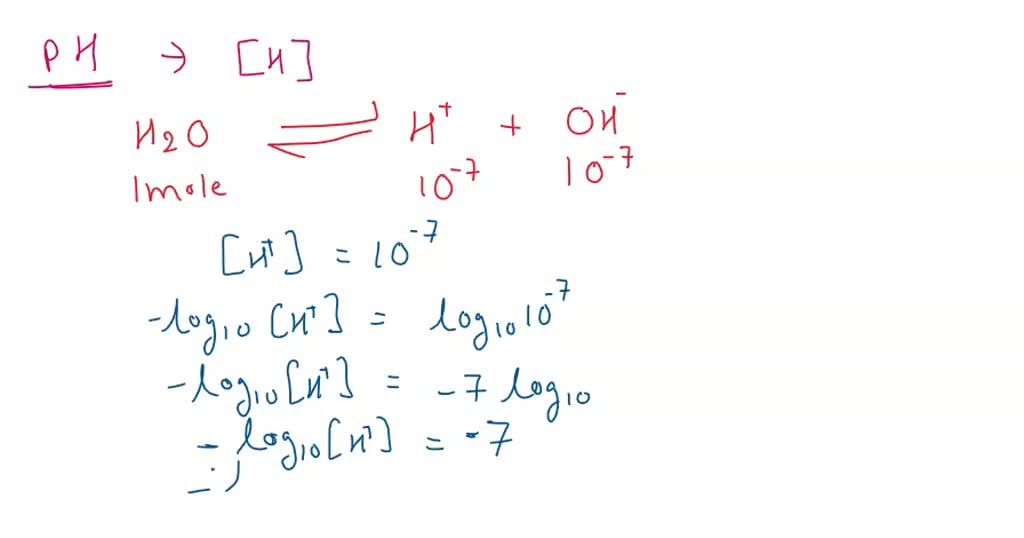 PH → [H]
H₂O ⇌ H⁺ + OH⁻
1mole 10⁻⁷ 10⁻⁷
[H⁺] = 10⁻⁷
-log₁₀ [H⁺] = log₁₀ 10⁻⁷
-log₁₀ [H⁺] = -7 log₁₀
- log₁₀ [H⁺] = -7